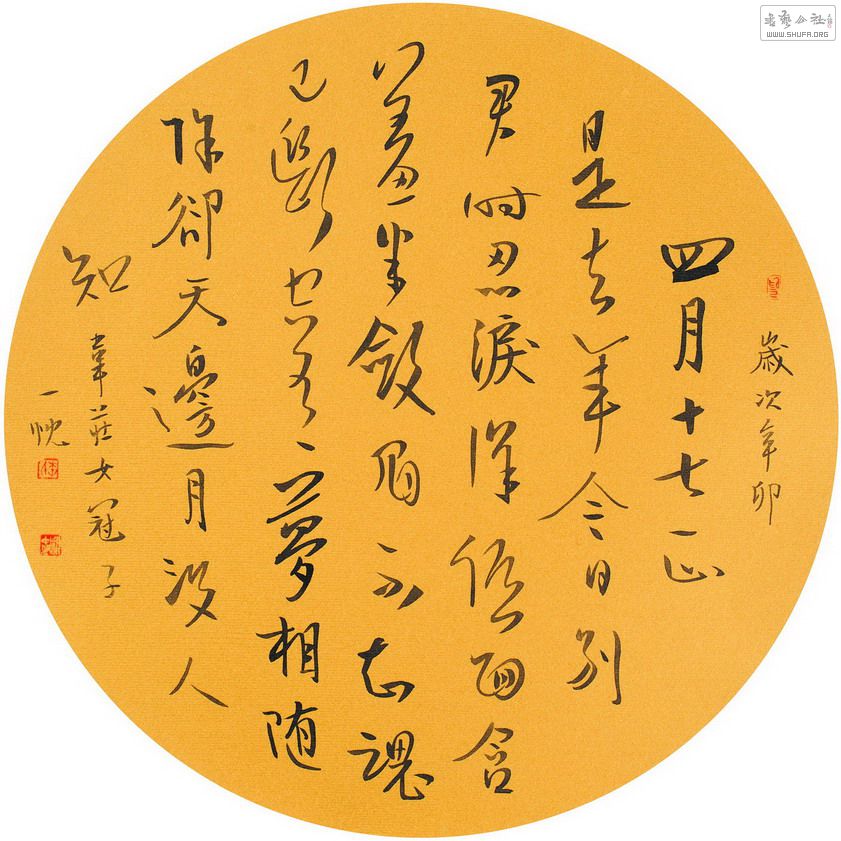 歲次辛卯
四月十七正
是去年今日別
君時忍淚佯低面含
羞半斂眉不知魂
已斷空有夢相随
除卻天邊月沒人
知
韋莊女冠子
書藝公社
WWW.SHUFA.ORG